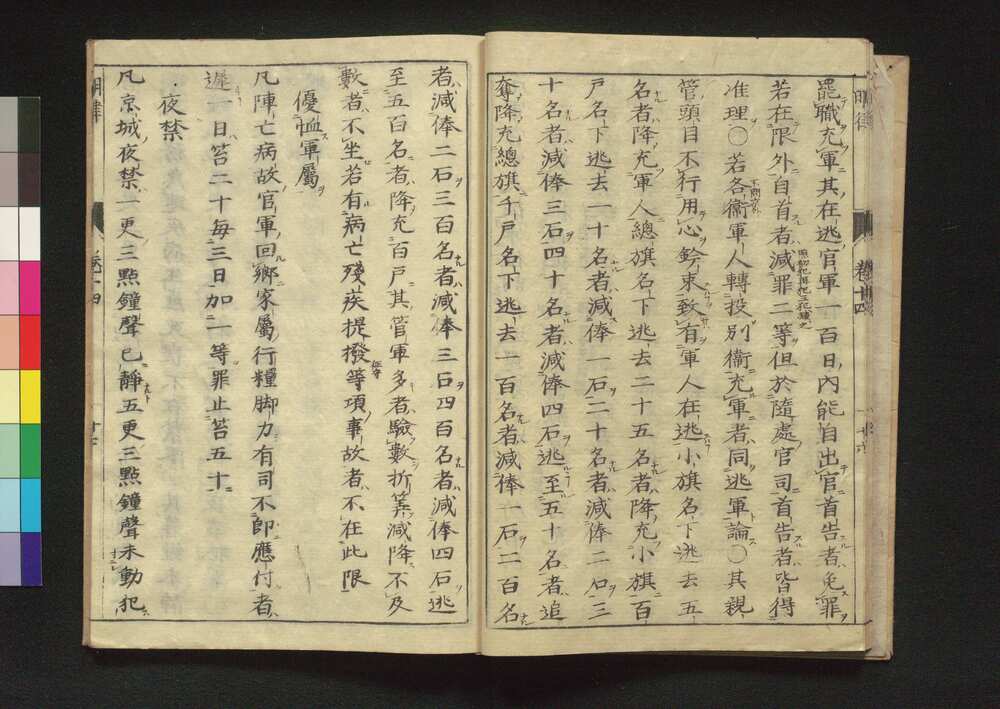 罷職充軍其在逃官軍一百日內能自出官首告者免罪
若在限外自首者減罪二等但於隨處官司首告者皆得
准理○若各衞軍人轉投別衞充軍者同逃軍論○其親
管頭目不行用心鈐束致有軍人在逃小旗名下逃去五
名者降充軍人總旗名下逃去二十五名者降充小旗百
戶名下逃去一十名者減俸一石二十名者減俸二石三
十名者減俸三石四十名者減俸四石逃至五十名者追
奪降充總旗千戶名下逃去一百名者減俸一石二百名
者減俸二石三百名者減俸三石四百名者減俸四石逃
至五百名者降充百戶其管軍多者驗數折筭減降不及
數者不坐若有病亡殘疾提撥等項事故者不在此限
優恤軍屬
凡陣亡病故官軍回鄉家屬行糧脚力有司不卽應付者
遲一日笞二十每三日加一等罪止笞五十
夜禁
凡京城夜禁一更三點鐘聲已靜五更三點鐘聲未動犯
明律
卷十四